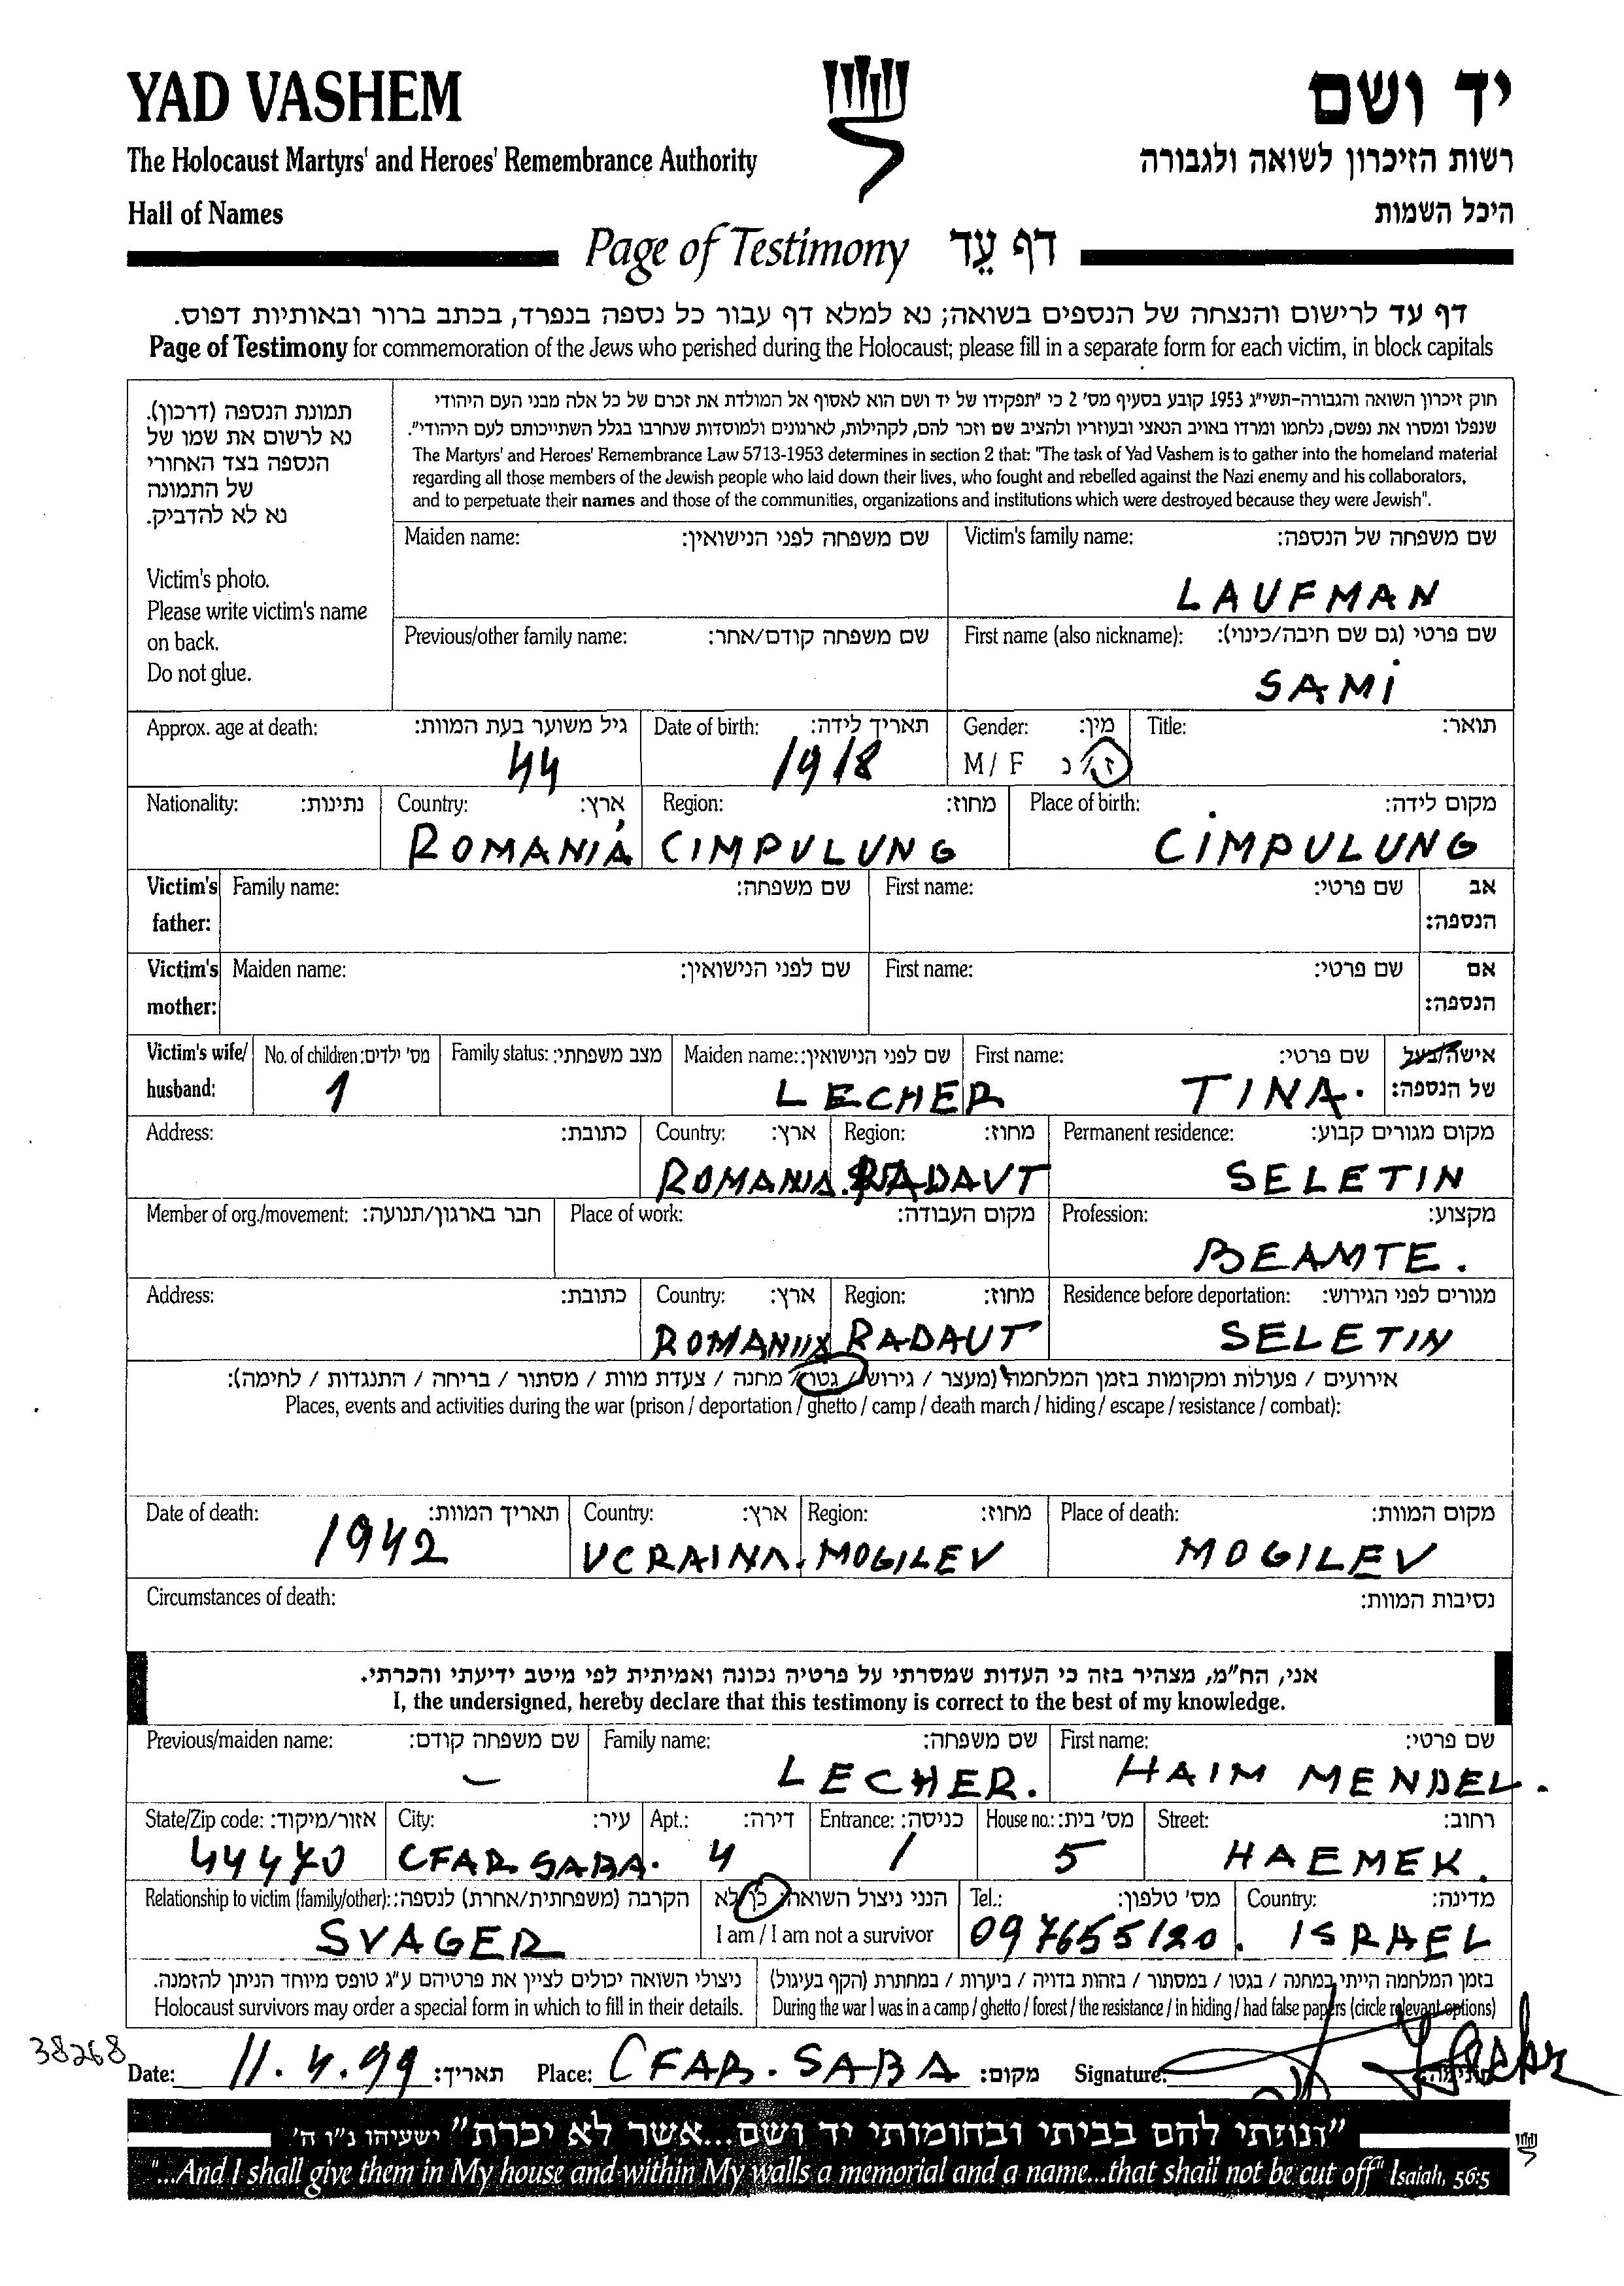 YAD VASHEM
יד ושם
The Holocaust Martyrs' and Heroes' Remembrance Authority
רשות הזיכרון לשואה ולגבורה
Hall of Names
היכל השמות
Page of Testimony דף עֵד
דף עד לרישום והנצחה של הנספים בשואה; נא למלא דף עבור כל נספה בנפרד, בכתב ברור ובאותיות דפוס.
Page of Testimony for commemoration of the Jews who perished during the Holocaust; please fill in a separate form for each victim, in block capitals
תמונת הנספה (דרכון).
נא לרשום את שמו של
הנספה בצד האחורי
של התמונה
נא לא להדביק.
Victim's photo.
Please write victim's name
on back.
Do not glue.
חוק זיכרון השואה והגבורה-תשי"ג 1953 קובע בסעיף מס' 2 כי "תפקידו של יד ושם הוא לאסוף אל המולדת את זכרם של כל אלה מבני העם היהודי
שנפלו ומסרו את נפשם, נלחמו ומרדו באויב הנאצי ובעוזריו ולהציב שם וזכר להם, לקהילות, לארגונים ולמוסדות שנחרבו בגלל השתייכותם לעם היהודי".
The Martyrs' and Heroes' Remembrance Law 5713-1953 determines in section 2 that: "The task of Yad Vashem is to gather into the homeland material
regarding all those members of the Jewish people who laid down their lives, who fought and rebelled against the Nazi enemy and his collaborators,
and to perpetuate their names and those of the communities, organizations and institutions which were destroyed because they were Jewish".
Maiden name: שם משפחה לפני הנישואין:
Victim's family name: שם משפחה של הנספה:
LAUFMAN
Previous/other family name: שם משפחה קודם/אחר:
First name (also nickname): שם פרטי (גם שם חיבה/כינוי):
SAMI
Approx. age at death: גיל משוער בעת המוות:
44
Date of birth: תאריך לידה:
1918
Gender: מין:
M / F ז / נ
Title: תואר:
Nationality: נתינות:
Country: ארץ:
ROMANIA
Region: מחוז:
CIMPULUNG
Place of birth: מקום לידה:
CIMPULUNG
Victim's father: Family name: שם משפחה:
First name: שם פרטי:
אב הנספה:
Victim's mother: Maiden name: שם לפני הנישואין:
First name: שם פרטי:
אם הנספה:
Victim's wife/ husband:
No. of children: מס' ילדים:
1
Family status: מצב משפחתי:
Maiden name: שם לפני הנישואין:
LECHER
First name: שם פרטי:
TINA.
אישה/בעל של הנספה:
Address: כתובת:
Country: ארץ:
ROMANIA.
Region: מחוז:
RADAUT
Permanent residence: מקום מגורים קבוע:
SELETIN
Member of org./movement: חבר בארגון/תנועה:
Place of work: מקום העבודה:
Profession: מקצוע:
BEAMTE.
Address: כתובת:
Country: ארץ:
ROMANIA
Region: מחוז:
RADAUT
Residence before deportation: מגורים לפני הגירוש:
SELETIN
אירועים / פעולות ומקומות בזמן המלחמה (מעצר / גירוש / גטו / מחנה / צעדת מוות / מסתור / בריחה / התנגדות / לחימה):
Places, events and activities during the war (prison / deportation / ghetto / camp / death march / hiding / escape / resistance / combat):
Date of death: תאריך המוות:
1942
Country: ארץ:
UCRAINA.
Region: מחוז:
MOGILEV
Place of death: מקום המוות:
MOGILEV
Circumstances of death: נסיבות המוות:
אני, הח"מ, מצהיר בזה כי העדות שמסרתי על פרטיה נכונה ואמיתית לפי מיטב ידיעתי והכרתי.
I, the undersigned, hereby declare that this testimony is correct to the best of my knowledge.
Previous/maiden name: שם משפחה קודם:
–
Family name: שם משפחה:
LECHER.
First name: שם פרטי:
HAIM MENDEL.
State/Zip code: אזור/מיקוד:
44470
City: עיר:
CFAR SABA.
Apt.: דירה:
4
Entrance: כניסה:
1
House no.: מס' בית:
5
Street: רחוב:
HAEMEK.
Relationship to victim (family/other): הקרבה (משפחתית/אחרת) לנספה:
SVAGER
הנני ניצול השואה: כן / לא
I am / I am not a survivor
Tel.: מס' טלפון:
097655120.
Country: מדינה:
ISRAEL
ניצולי השואה יכולים לציין את פרטיהם ע"ג טופס מיוחד הניתן להזמנה.
Holocaust survivors may order a special form in which to fill in their details.
בזמן המלחמה הייתי במחנה / בגטו / במסתור / בזהות בדויה / ביערות / במחתרת (הקף בעיגול)
During the war I was in a camp / ghetto / forest / the resistance / in hiding / had false papers (circle relevant options)
38268
Date: 11.4.99 תאריך: Place: CFAR. SABA מקום: Signature: חתימה:
"ונתתי להם בביתי ובחומותי יד ושם...אשר לא יכרת" ישעיהו נ"ו ה'
"...And I shall give them in My house and within My walls a memorial and a name...that shall not be cut off" Isaiah, 56:5